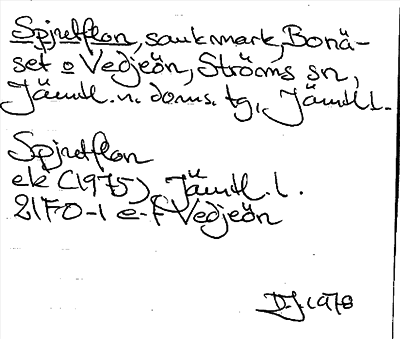 Spjutflon, sankmark, Bonä-
set o Vedjeön, Ströms sn,
Jämtl. n. doms. tg, Jämtl. l.
Spjutflon
ek (1975), Jämtl. l.
21F0-1 e-f Vedjeön
D.J. 1978